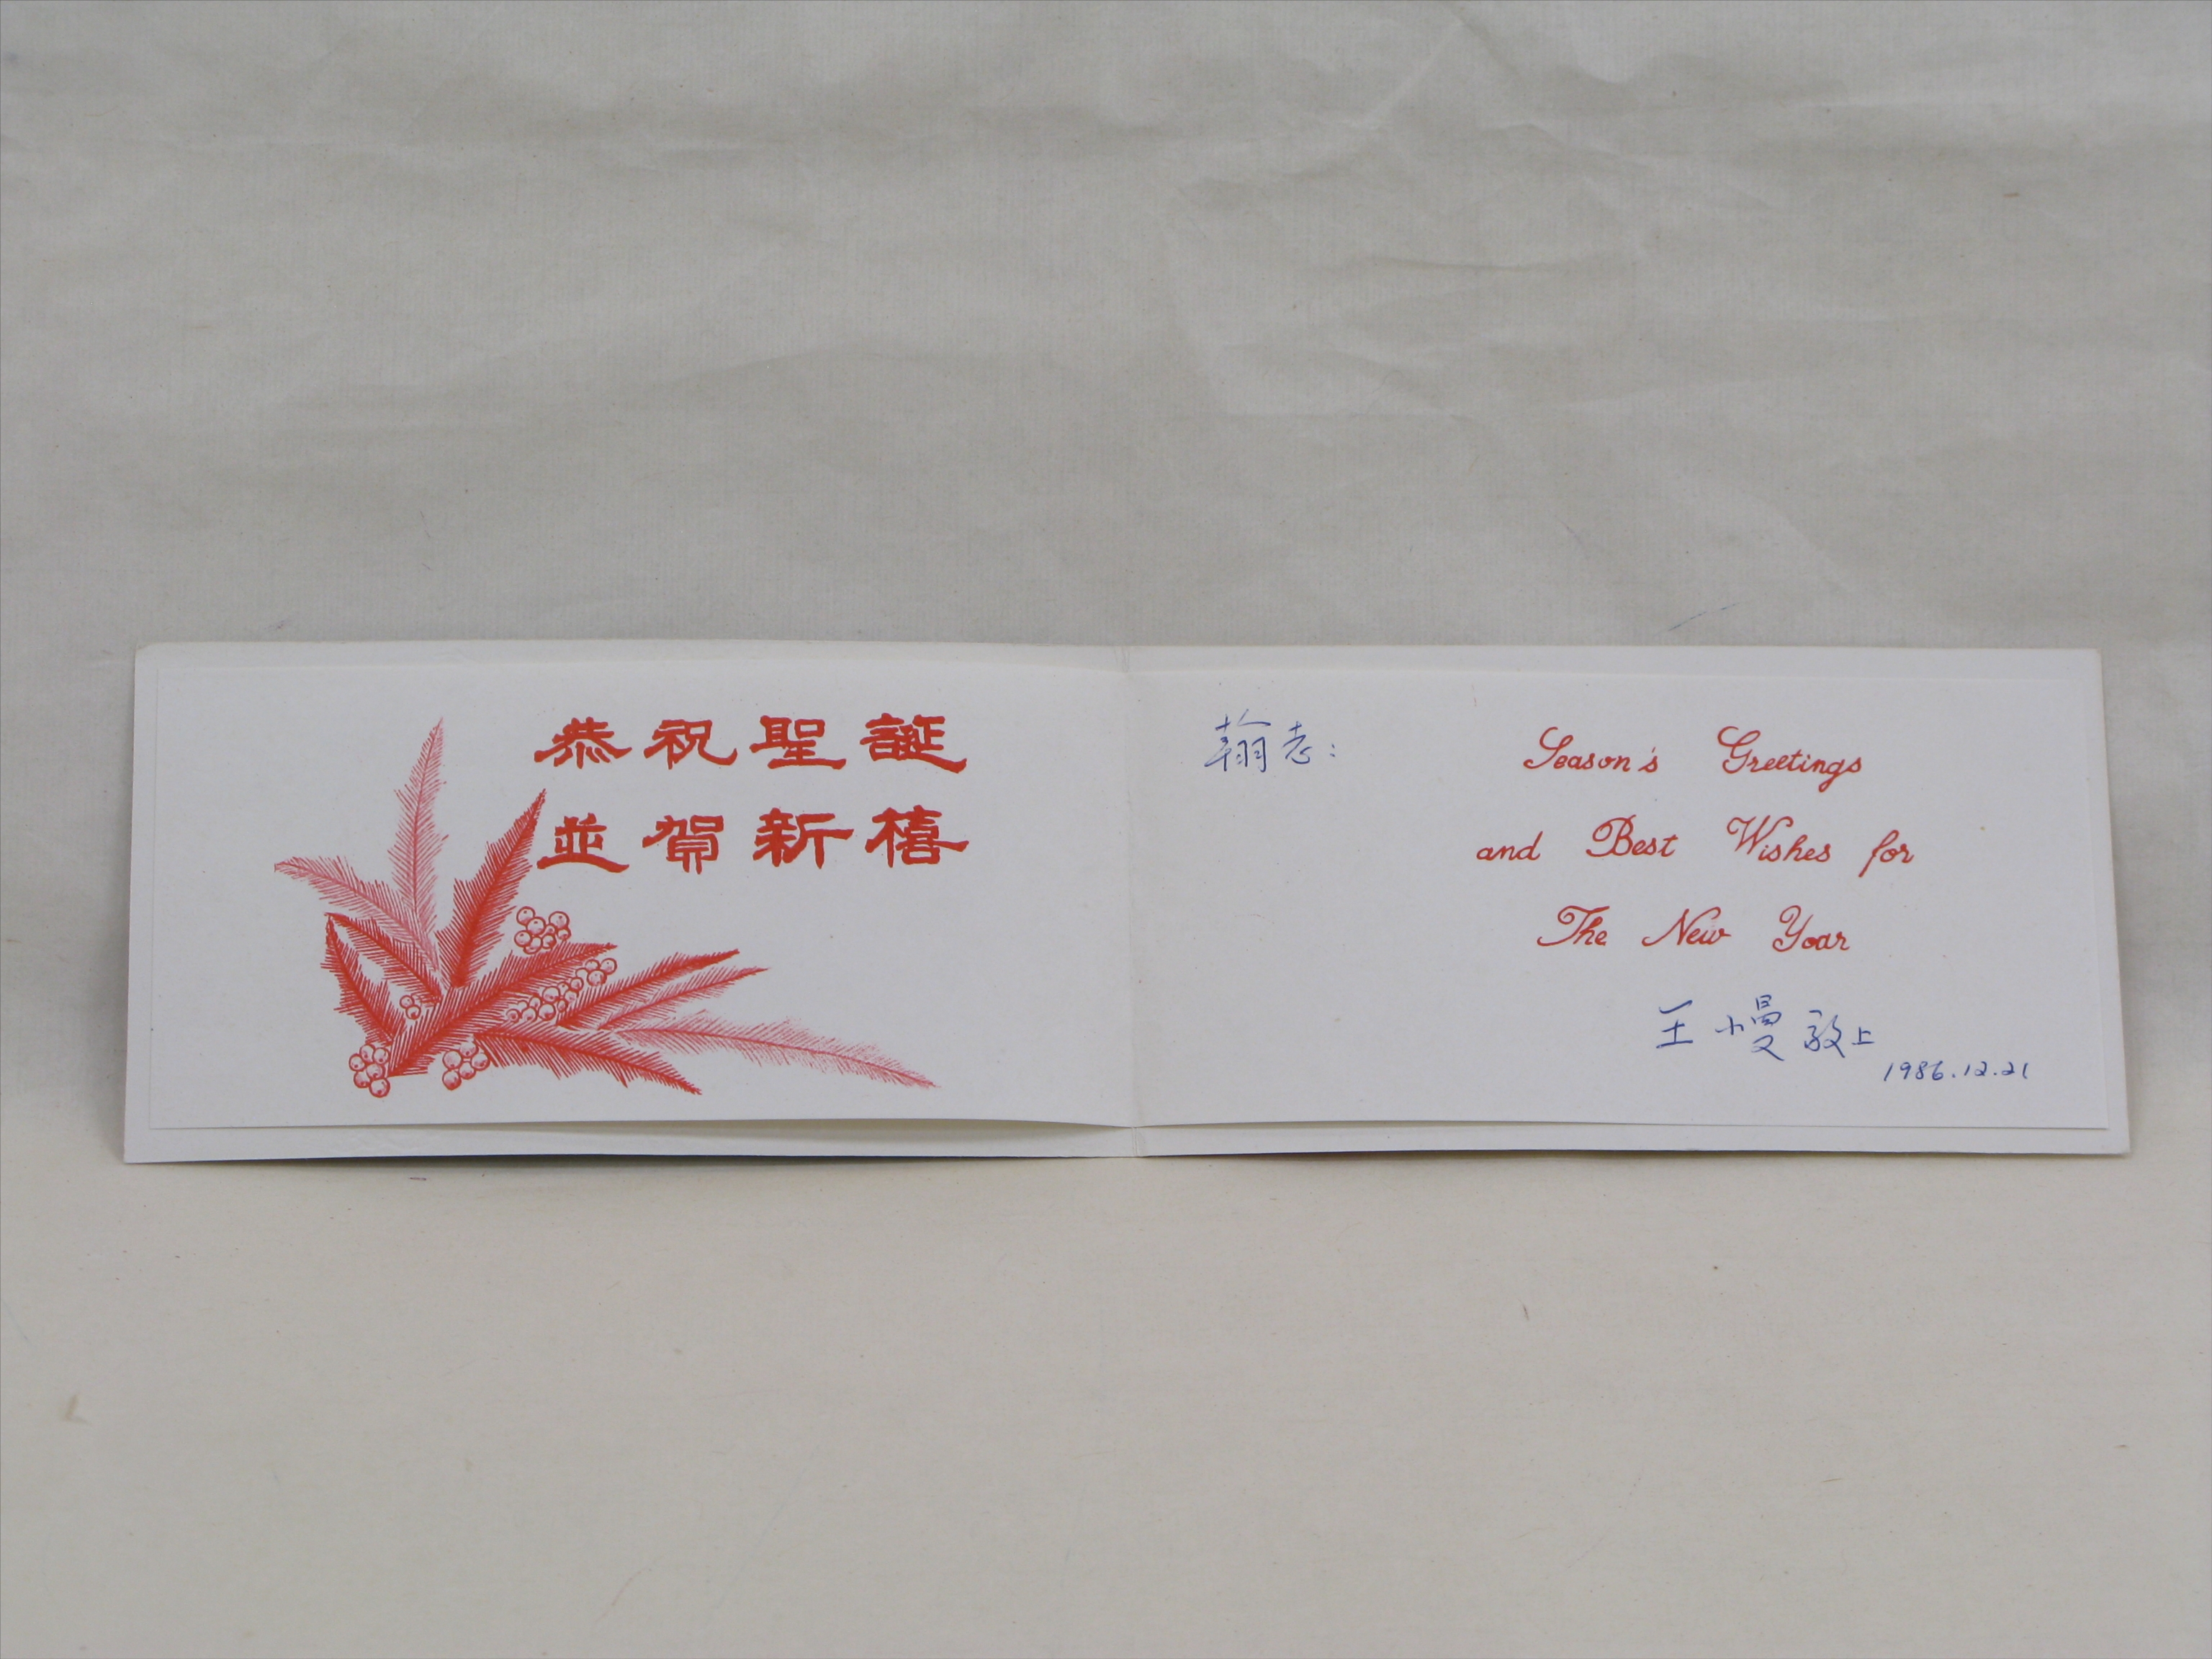 恭祝聖誕
並賀新禧
翰志:
Season's Greetings
and Best Wishes for
The New Year
王小曼敬上
1986.12.21